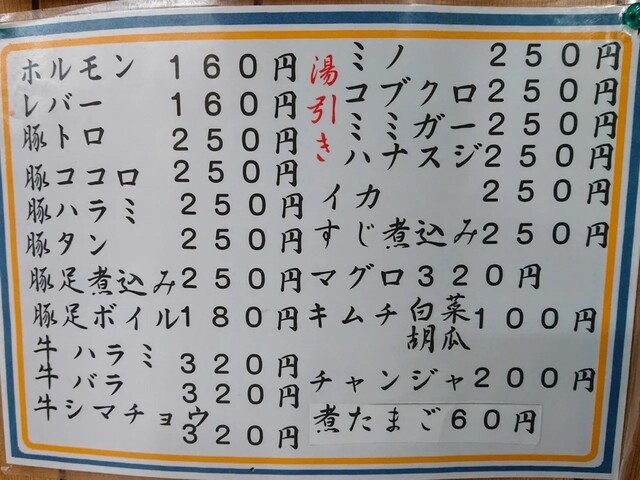 ホルモン 160円
レバー 160円
豚トロ 250円
豚ココロ 250円
豚ハラミ 250円
豚タン 250円
豚足煮込み250円
豚足ボイル180円
牛ハラミ 320円
牛バラ 320円
牛シマチョウ 320円
湯引き
ミノ 250円
コブクロ 250円
ミミガー 250円
ハナスジ250円
イカ 250円
すじ煮込み250円
マグロ320円
キムチ 白菜 胡瓜 100円
チャンジャ200円
煮たまご60円